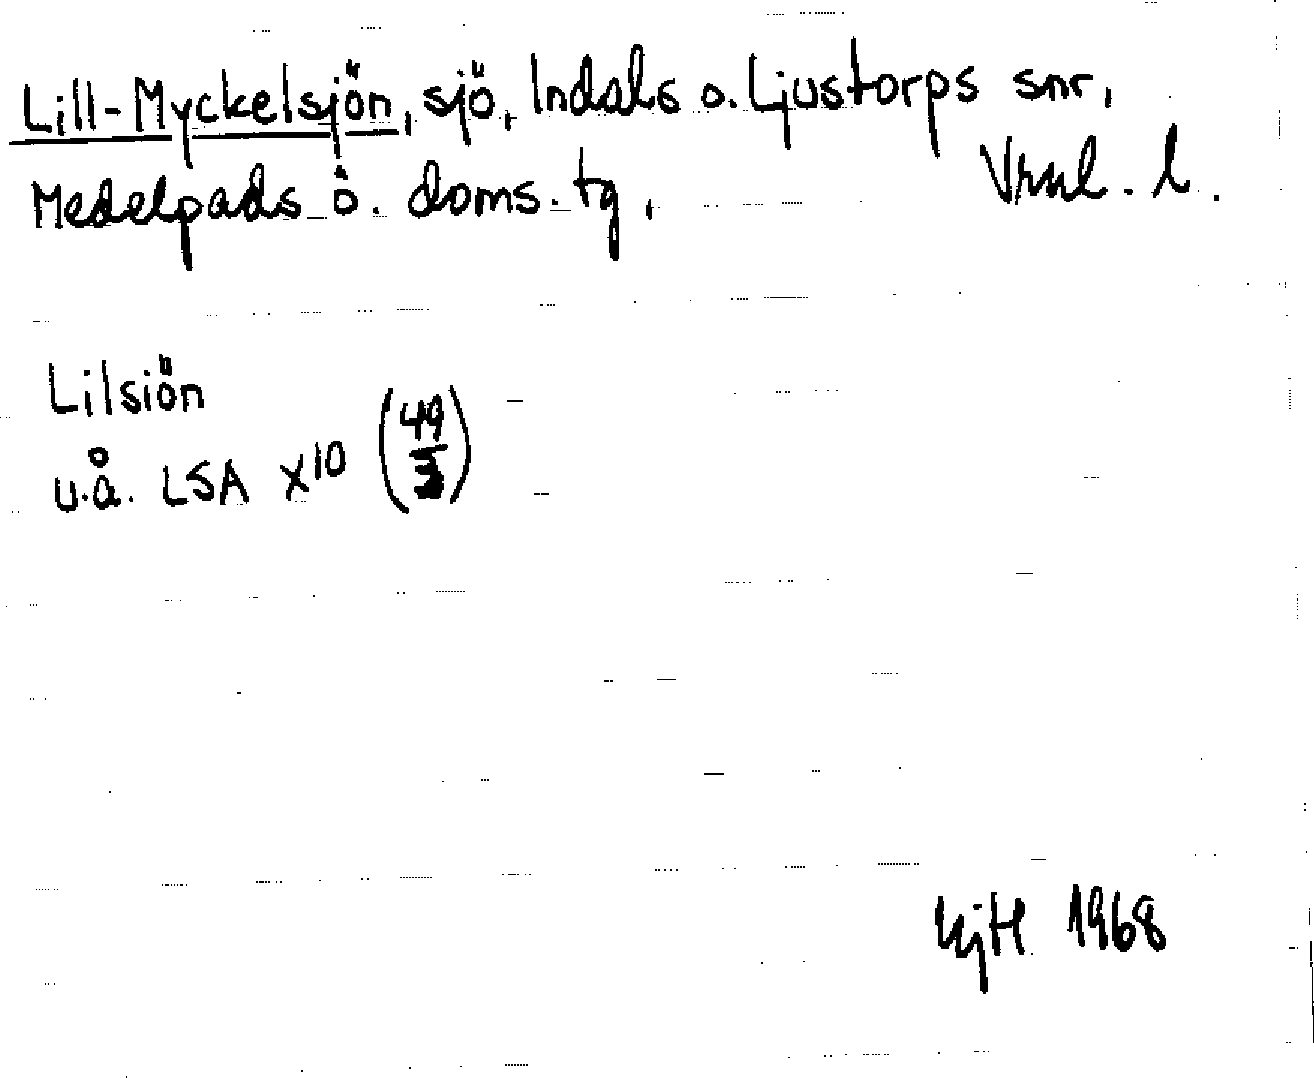 Lill-Myckelsjön, sjö, Indals o. Ljustorps snr,
Medelpads ö. doms. tg, Vrnl. l.
Lilsiön
u.å. LSA X10 (49
1968